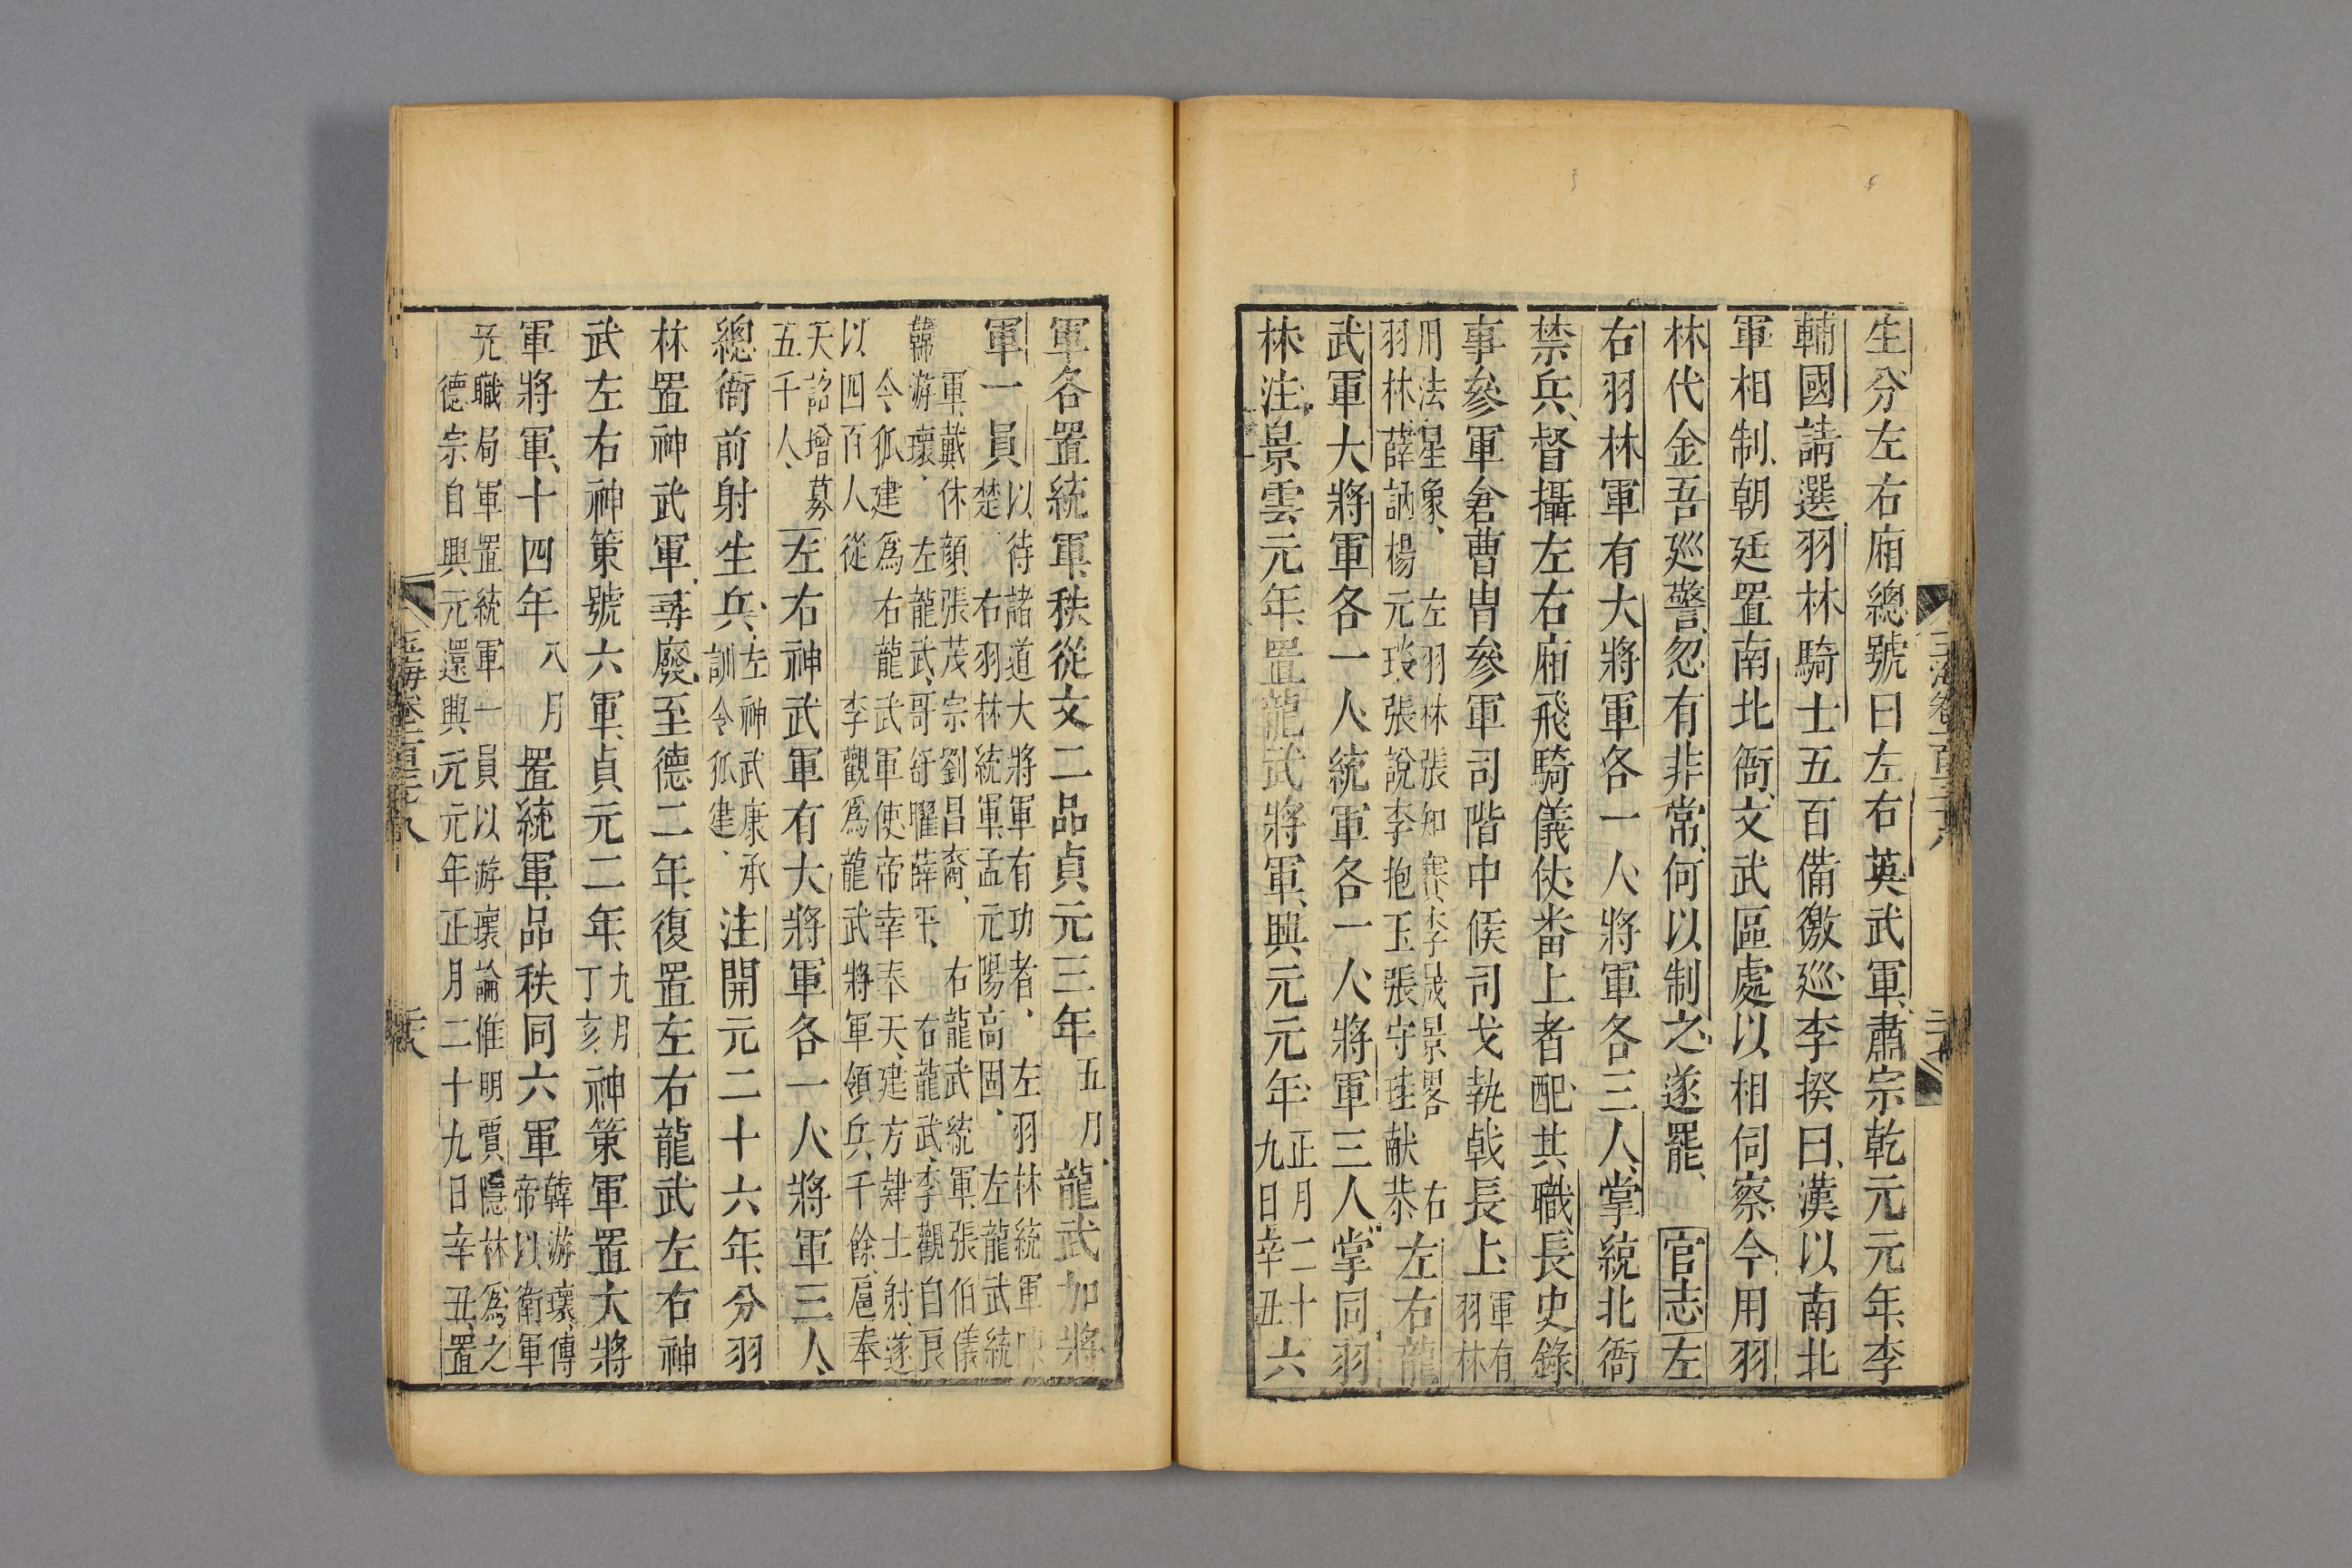 生分左右廂總號曰左右英武軍肅宗乾元元年李
輔國請選羽林騎士五百備徼巡李揆曰漢以南北
軍相制朝廷置南北衙文武區處以相伺察今用羽
林代金吾巡警忽有非常何以制之遂罷 官志左
右羽林軍有大將軍各一人將軍各三人掌統北衙
禁兵督攝左右廂飛騎儀仗畨上者配其職長史錄
事參軍倉曹冑參軍司階中候司戈執戟長上軍有
羽林
用法星象 左羽林張知騫李晟景畧 右
羽林薛訥楊元琰張說李抱玉張守珪献恭
左右龍
武軍大將軍各一人統軍各一人將軍三人掌同羽
林注景雲元年置龍武將軍興元元年正月二十
九日辛丑
六
軍各置統軍秩從文二品貞元三年五月龍武加將
軍一員以待諸道大將軍有功者 左羽林統軍
楚 右羽林統軍孟元陽高固 左龍武統
軍戴休顔張茂宗劉昌裔 右龍武統軍張伯儀
韓游瓌 左龍武哥舒曜薛平 右龍武李觀自良
令狐建爲右龍武軍使帝幸奉天建方肄士射遂
以四百人從 李觀爲龍武將軍領兵千餘扈奉
天詔增募
五千人
左右神武軍有大將軍各一人將軍三人
總衙前射生兵左神武康承
訓令狐建
注開元二十六年分羽
林置神武軍尋廢至德二年復置左右龍武左右神
武左右神策號六軍貞元二年九月
丁亥
神策軍置大將
軍將軍十四年八月置統軍品秩同六軍韓游瓌傳
帝以衛軍
无職局軍置統軍一員以游瓌論惟明賈隱林爲之
德宗自興元還興元元年正月二十九日辛丑置